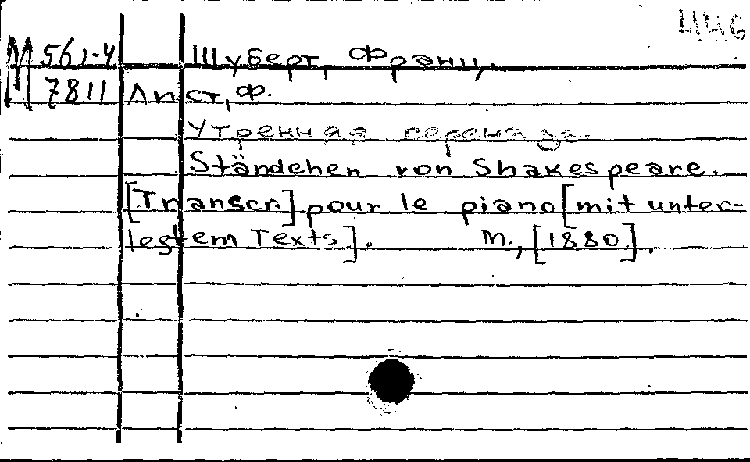 446
М 561-4 Шуберт, Франц.
7811 Лист, Ф.
Утренняя серенада.
Ständchen von Shakespeare.
[Transcr.] pour le piano [mit unter-
legtem Texts]. М., [1880].